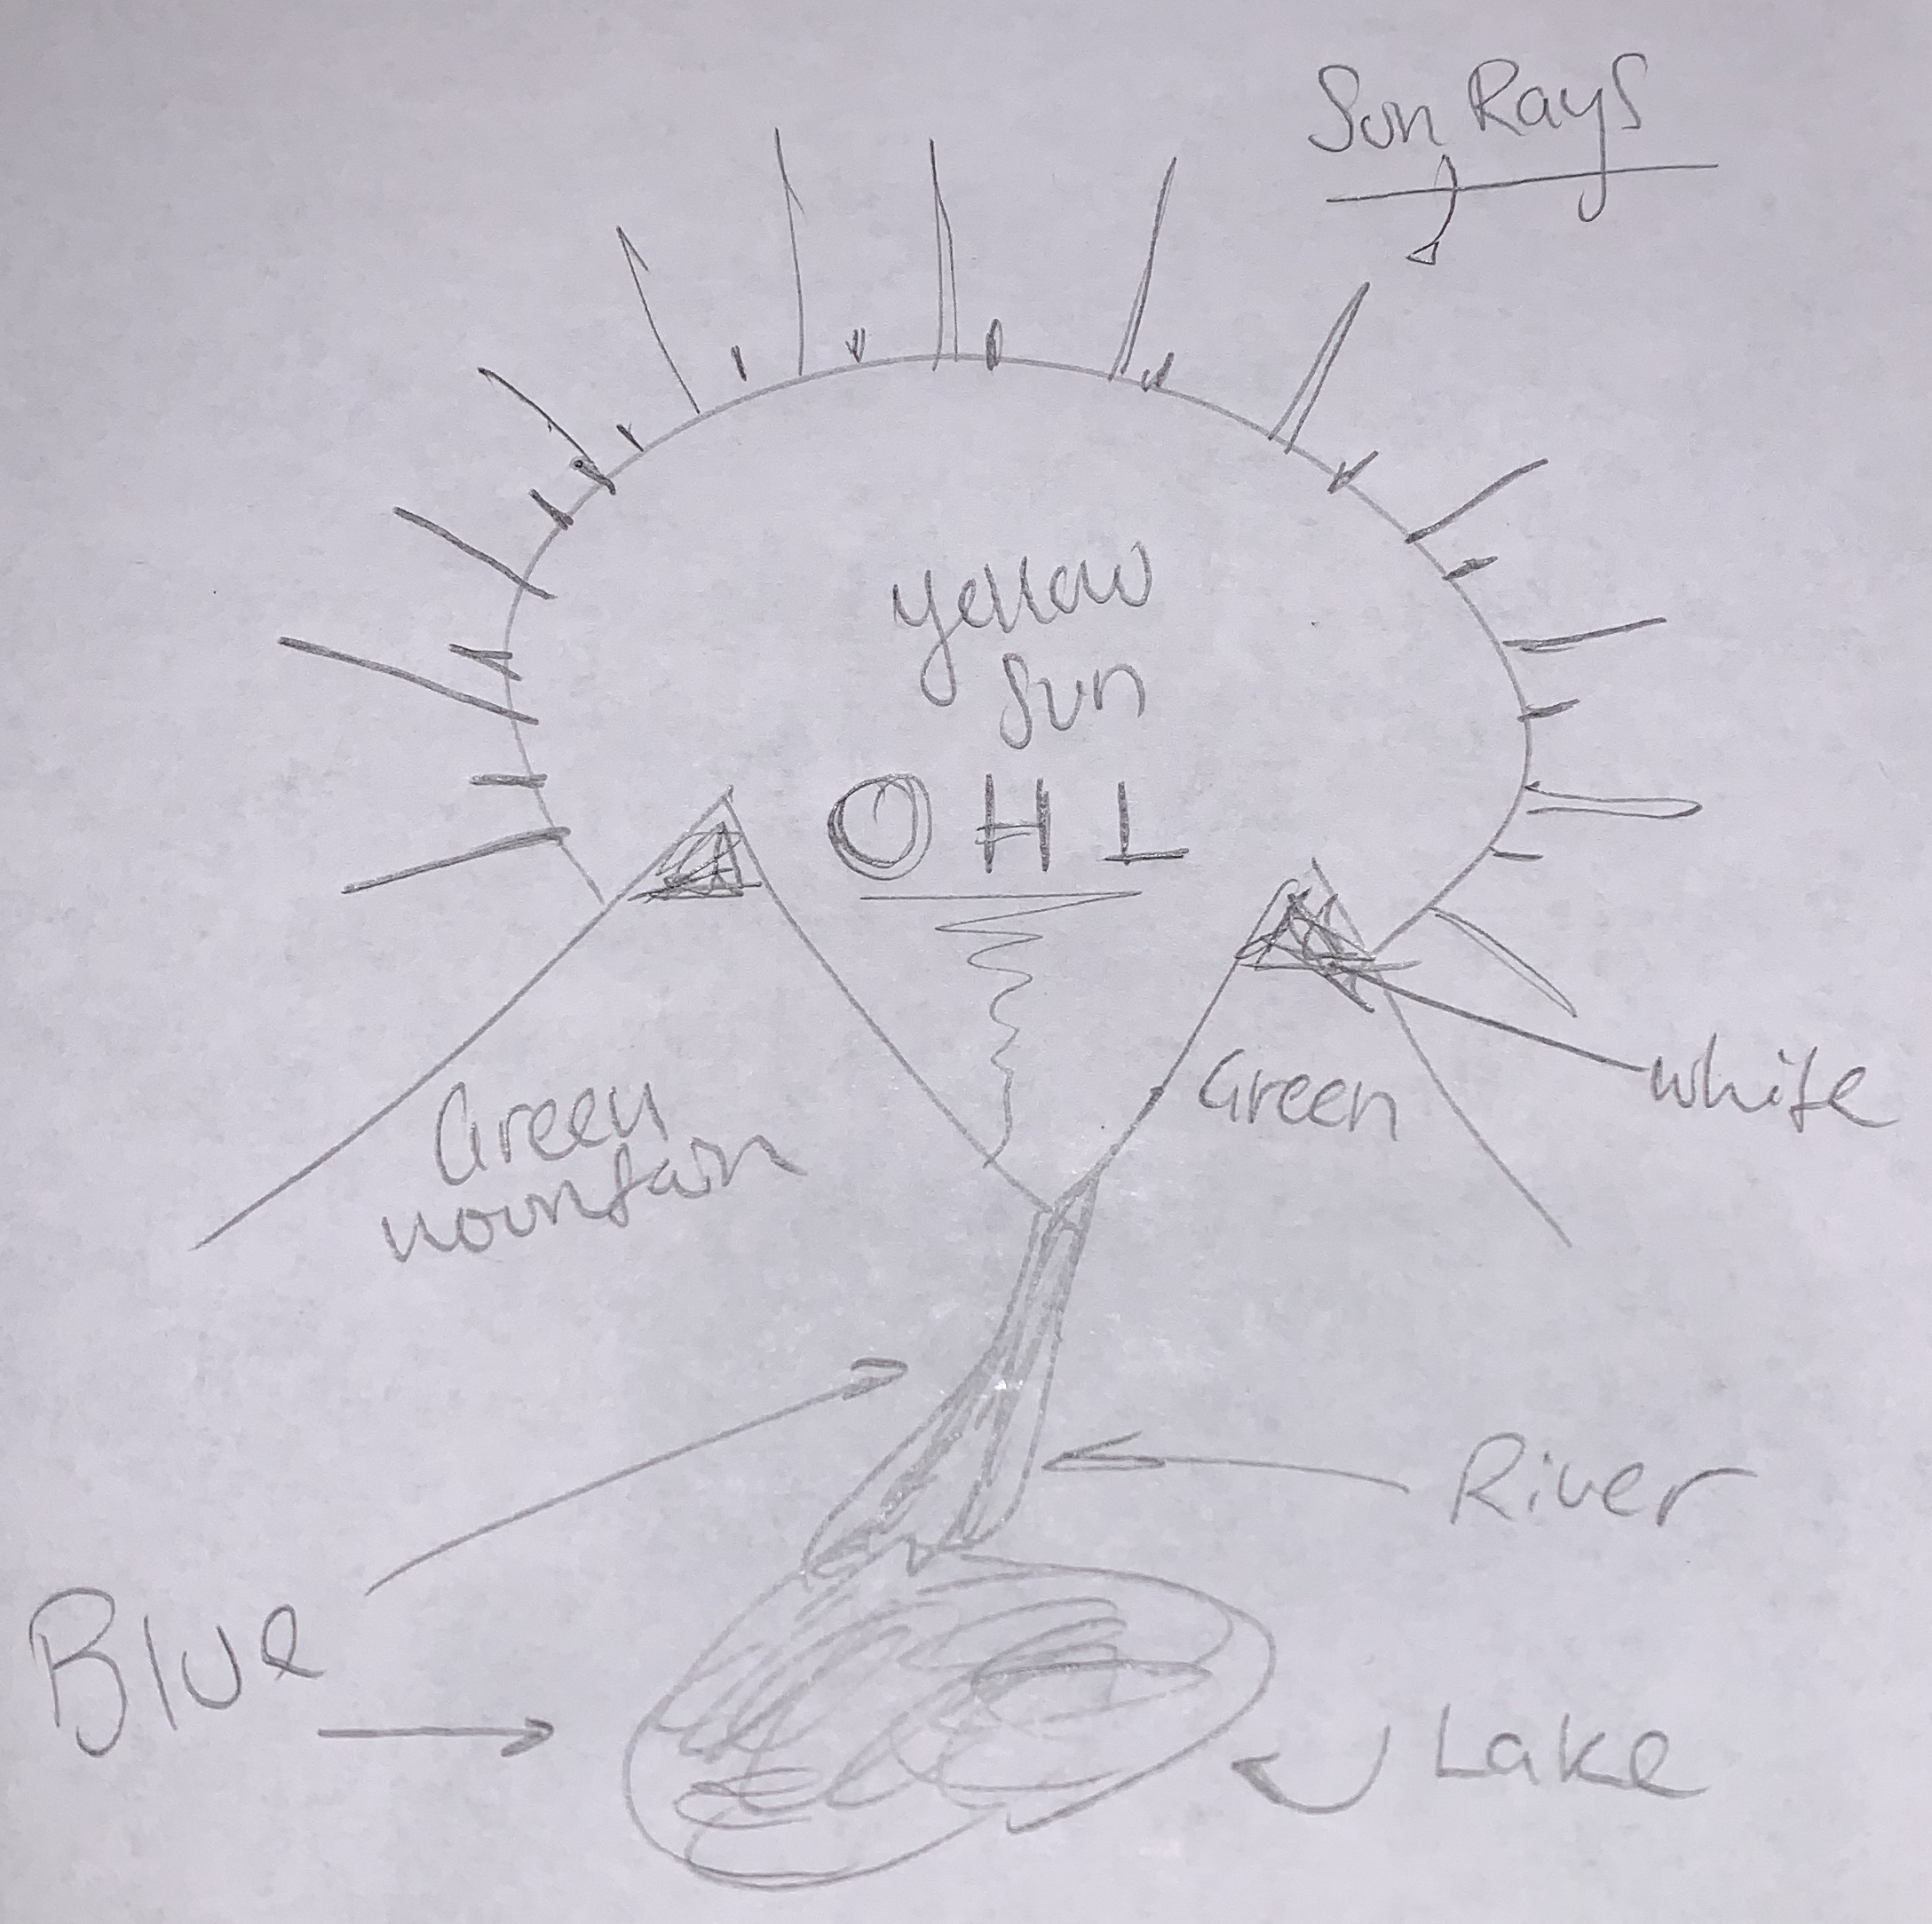 Sun Rays
yellow
sun
OHL
Green
mountain
Green
white
River
Blue
Lake